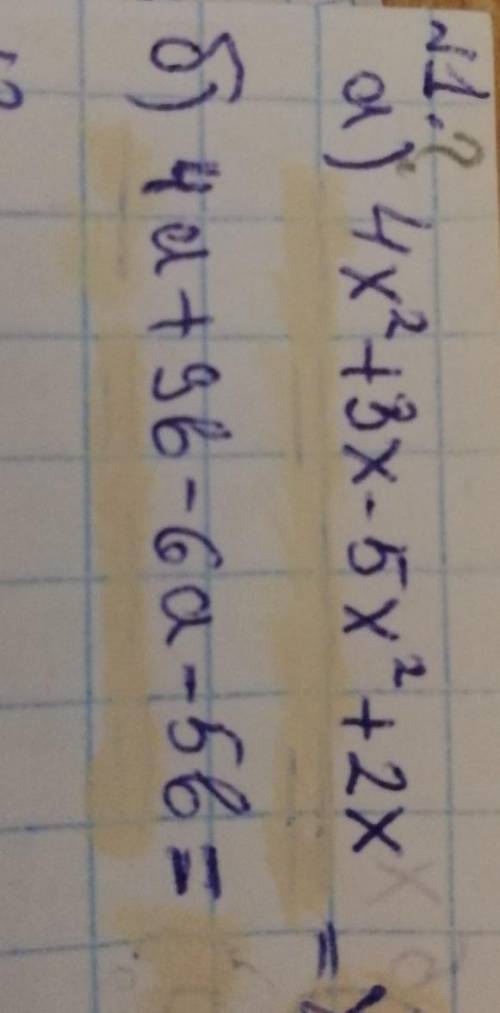 №1.
а) 4x²+3x-5x²+2x =
б) 4a+9b-6a-5b=